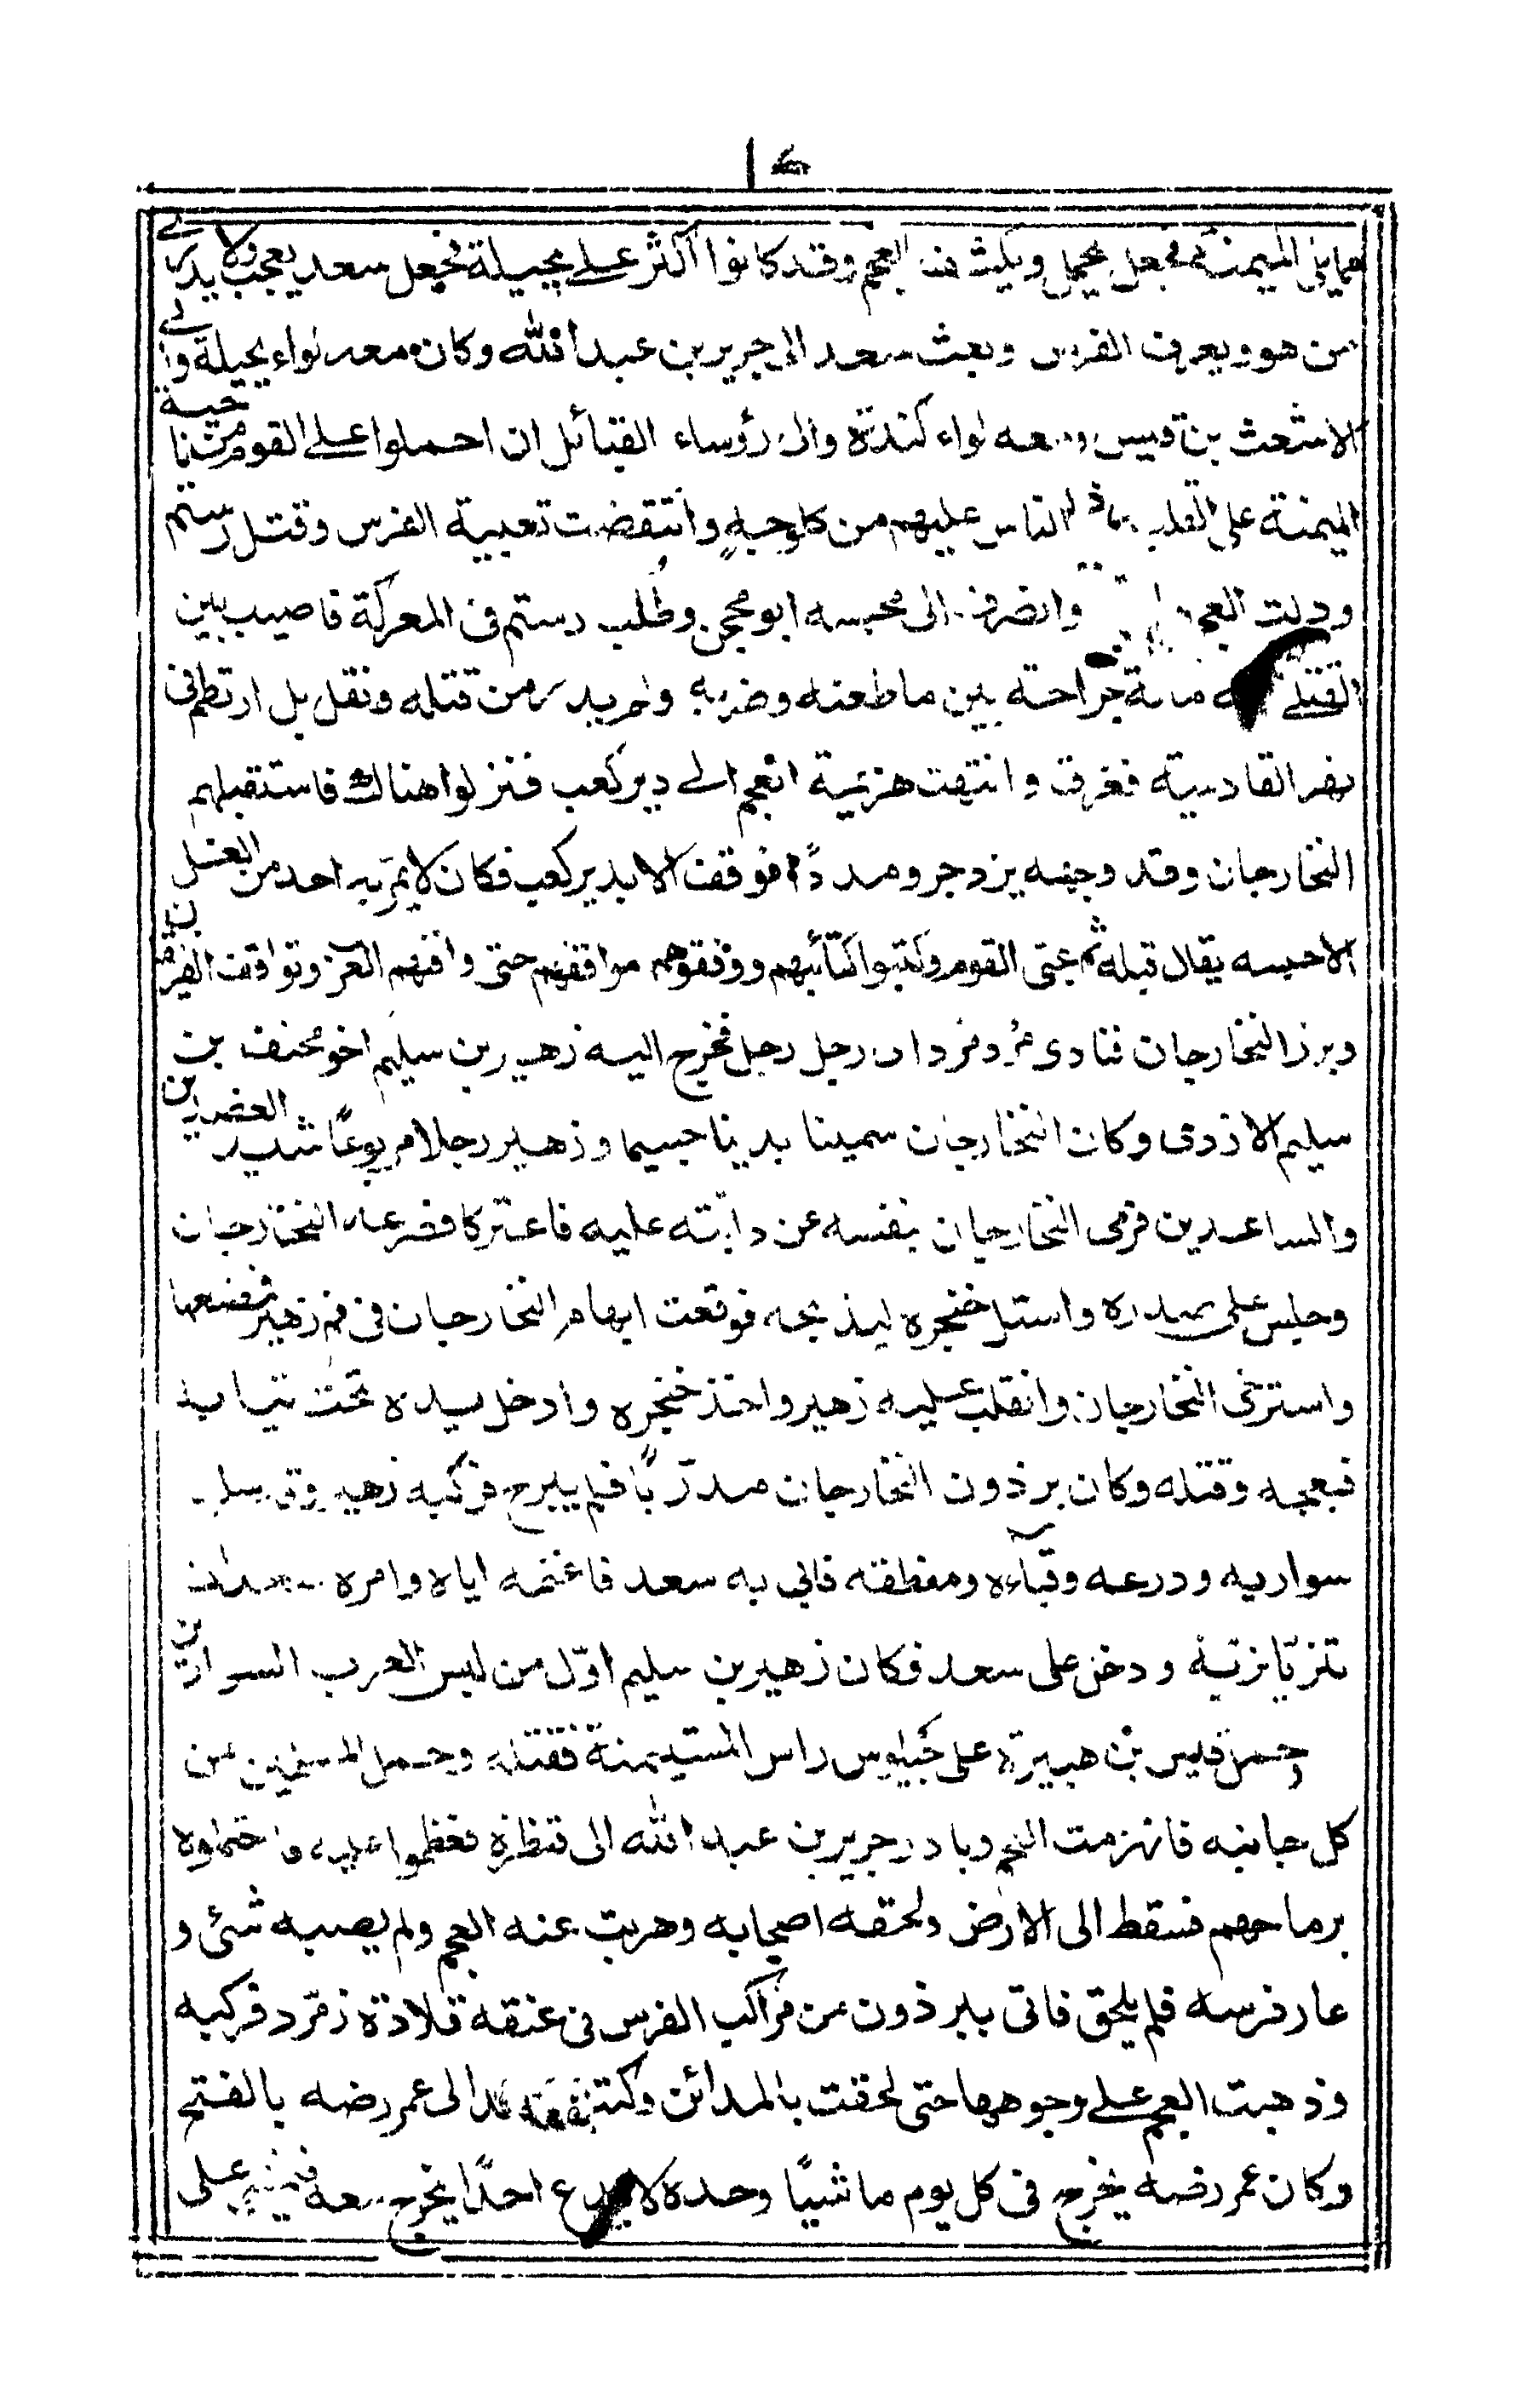 مما يلي الميمنة فجعل يحمل ويكشف العجم وقد كانوا اكثر على بجيلة فجعل سعد يعجب ولا يدرى
من هو ويعرف الفرس وبعث سعد الى جرير بن عبد الله وكان معه لواء بجيلة والى
الاشعث بن قيس ومعه لواء كندة والى رؤساء القبائل ان احملوا على القوم من ناحية
الميمنة على القلب الناس عليهم من كل وجه وانتقضت تعبية الفرس وقتل رستم
وولت العجم وانصرف الى محبسه ابو محجن وطلب رستم فى المعركة فاصيب بين
القتلى مائة جراحة بين ما طعنه وضربه ولم يدر من قتله ونقل بل ارتطم فى
نهر القادسية فغرق وانتهت هزيمة العجم الى دير كعب فنزلوا هناك فاستقبلهم
النخارجان وقد وجهه يزدجرد مددًا فوقف الا بدير كعب فكان لا يمرّ به احد من الفل
الا حبسه يقال قبله ثم عبى القوم وكتبوا كتائبهم ووقفوهم مواقفهم حتى وافهم العرب وتواقف الفريقان
وبرز النخارجان فنادى مرد ومرد اى رجل رجل فخرج اليه زهير بن سليم اخو مخنف بن
سليم الازدى وكان النخارجان سمينا بدينا جسيما وزهير رجلا مربوعًا شديد العضدين
والساعدين فرمى النخارجان بنفسه عن دابّته عليه فاعتركا فصرعه النخارجان
وجلس على صدره واستل خنجره ليذبحه فوقعت ابهام النخارجان فى فم زهير فمضغها
واسترخى النخارجان وانقلب عليه زهير واخذ خنجره وادخل يده تحت ثيابه
فبعجه وقتله وكان برذون النخارجان مدرّبًا فلم يبرح فركبه زهير وقد سلبه
سواريه ودرعه وقباءه ومنطقته فاتى به سعد فاغنمه اياه وامره سعد ان
يتزيّا بزيّه ودخل على سعد فكان زهير بن سليم اوّل من لبس العرب السوارين
وحمل قيس بن هبيرة على جيلوس راس المستميمنة فقتله وحمل المسلمين من
كل جانبه فانهزمت العجم وبادر جرير بن عبد الله الى قنطرة فعطفوا عليه واحتملوه
برماحهم فسقط الى الارض ولحقه اصحابه وهربت عنه العجم ولم يصبه شئ و
عار فرسه فلم يلحق فاتى ببرذون من مراكب الفرس فى عنقه قلادة زمرّد فركبه
وذهبت العجم على وجوهها حتى لحقت بالمدائن وكتب سعد الى عمر رضه بالفتح
وكان عمر رضه يخرج فى كل يوم ماشيًا وحده لا يدع احدًا يخرج معه فيمشى على